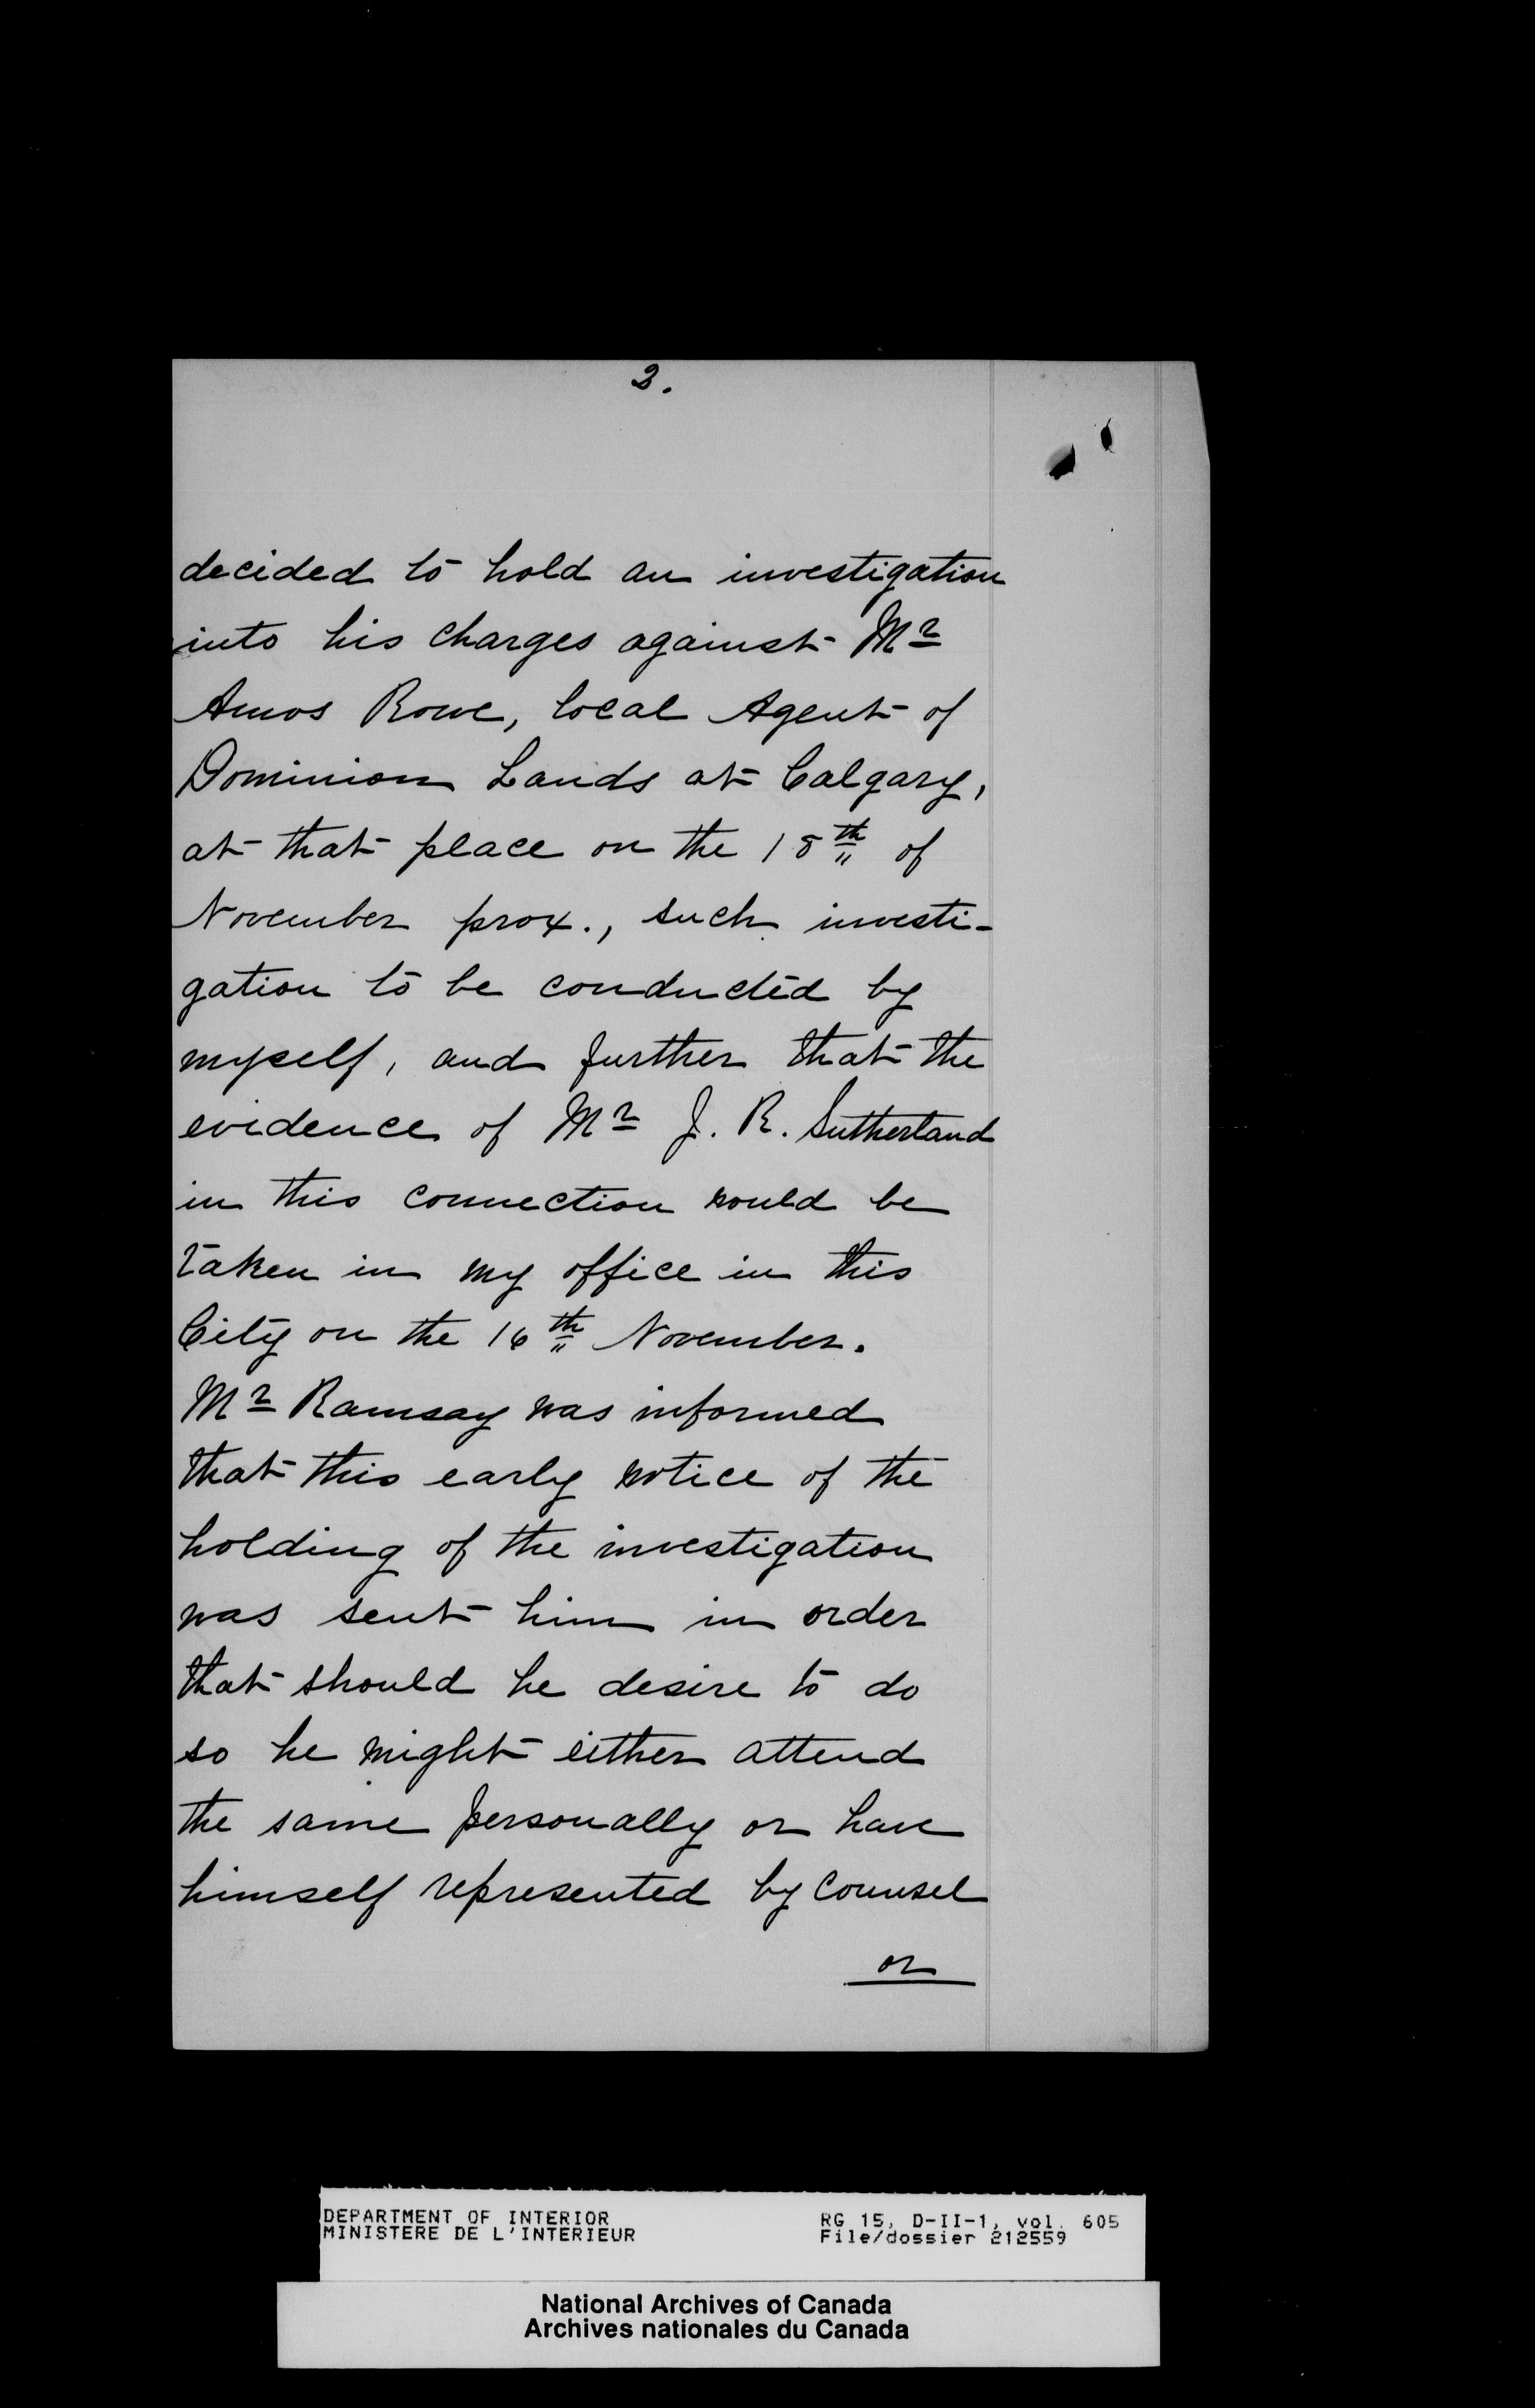 2.
decided to hold an investigation
into his charges against Mr
Amos Rowe, local Agent of
Dominion Lands at Calgary,
at that place on the 18th of
November prox., such investi-
gation to be conducted by
myself, and further that the
evidence of Mr J. R. Sutherland
in this connection would be
taken in my office in this
City on the 16th November.
Mr Ramsay was informed
that this early notice of the
holding of the investigation
was sent him in order
that should he desire to do
so he might either attend
the same personally or have
himself represented by Counsel
or
DEPARTMENT OF INTERIOR RG 15, D-II-1, vol. 605
MINISTERE DE L'INTERIEUR File/dossier 212559
National Archives of Canada
Archives nationales du Canada